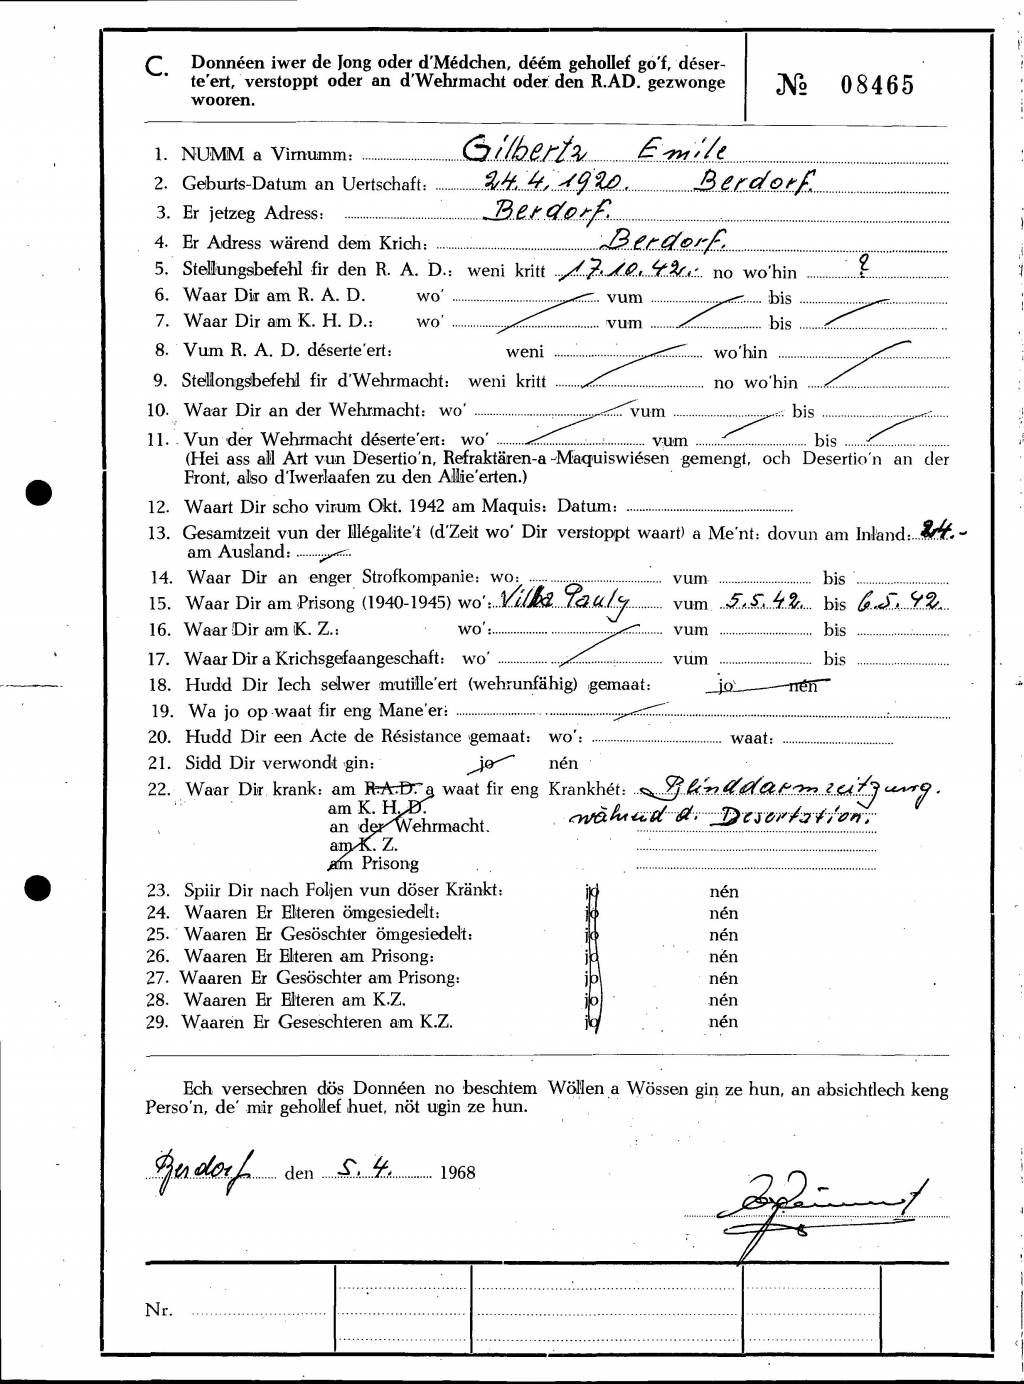 C. Donnéen iwer de Jong oder d'Médchen, déém gehollef go'f, déser-
te'ert, verstoppt oder an d'Wehrmacht oder den R.AD. gezwonge
wooren.
№ 08465
1. NUMM a Virnumm: Gilbertz Emile
2. Geburts-Datum an Uertschaft: 24.4.1920. Berdorf.
3. Er jetzeg Adress: Berdorf.
4. Er Adress wärend dem Krich: Berdorf.
5. Stellungsbefehl fir den R. A. D.: weni kritt 17.10.42.- no wo'hin ?
6. Waar Dir am R. A. D. wo' vum bis
7. Waar Dir am K. H. D.: wo' vum bis
8. Vum R. A. D. déserte'ert: weni wo'hin
9. Stellongsbefehl fir d'Wehrmacht: weni kritt no wo'hin
10. Waar Dir an der Wehrmacht: wo' vum bis
11. Vun der Wehrmacht déserte'ert: wo' vum bis
(Hei ass all Art vun Desertio'n, Refraktären-a-Maquiswiésen gemengt, och Desertio'n an der
Front, also d'Iwerlaafen zu den Allie'erten.)
12. Waart Dir scho virum Okt. 1942 am Maquis: Datum:
13. Gesamtzeit vun der Illégalite't (d'Zeit wo' Dir verstoppt waart) a Me'nt: dovun am Inland: 24.-
am Ausland:
14. Waar Dir an enger Strofkompanie: wo: vum bis
15. Waar Dir am Prisong (1940-1945) wo': Villa Pauly vum 5.5.42. bis 6.5.42.
16. Waar Dir am K. Z.: wo': vum bis
17. Waar Dir a Krichsgefaangeschaft: wo' vum bis
18. Hudd Dir Iech selwer mutille'ert (wehrunfähig) gemaat: jo nén
19. Wa jo op waat fir eng Mane'er:
20. Hudd Dir een Acte de Résistance gemaat: wo': waat:
21. Sidd Dir verwondt gin: jo nén
22. Waar Dir krank: am R.A.D. a waat fir eng Krankhét: Blinddarmzeitzung.
am K. H. D. während d. Desertation.
an der Wehrmacht.
am K. Z.
am Prisong
23. Spiir Dir nach Foljen vun döser Kränkt: jo nén
24. Waaren Er Elteren ömgesiedelt: jo nén
25. Waaren Er Gesöschter ömgesiedelt: jo nén
26. Waaren Er Elteren am Prisong: jo nén
27. Waaren Er Gesöschter am Prisong: jo nén
28. Waaren Er Elteren am K.Z. jo nén
29. Waaren Er Geseschteren am K.Z. jo nén
Ech versechren dös Donnéen no beschtem Wöllen a Wössen gin ze hun, an absichtlech keng
Perso'n, de' mir gehollef huet, nöt ugin ze hun.
Berdorf den 5.4. 1968
Nr.